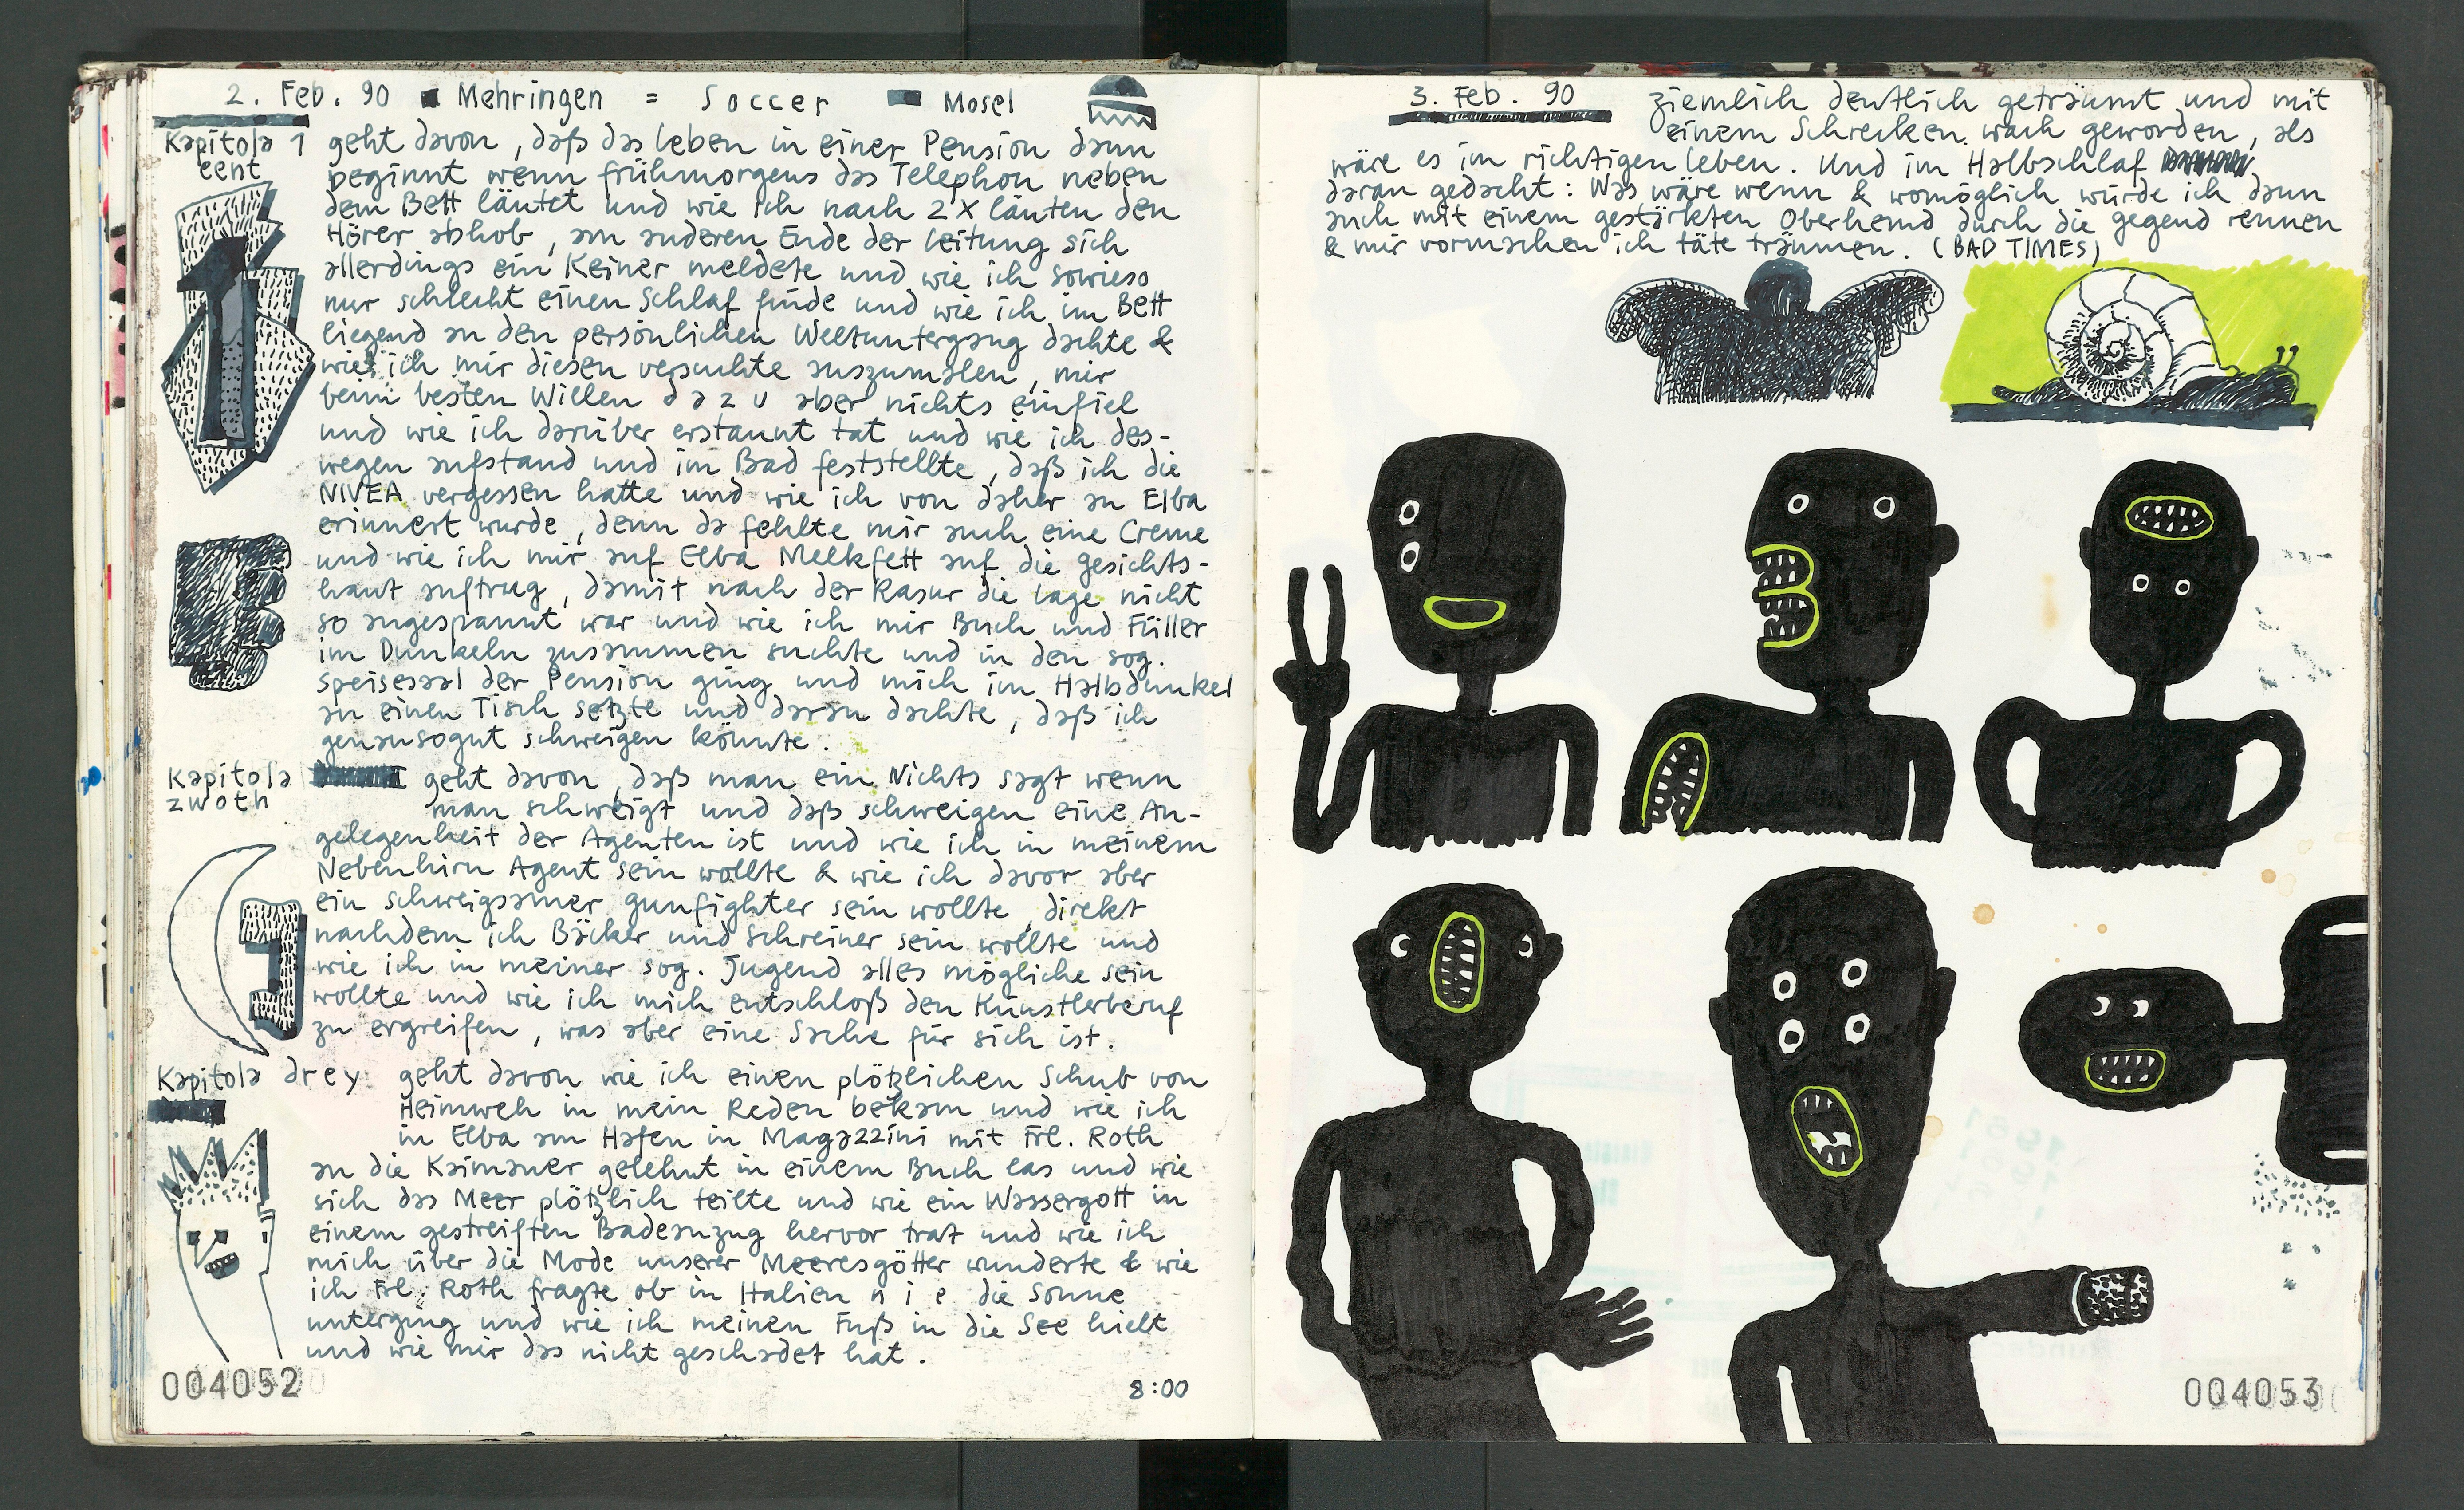 2. Feb. 90 Mehringen = Soccer Mosel
Kapitola 1 geht davon, daß das leben in einer Pension dann
eent beginnt wenn frühmorgens das Telephon neben
dem Bett läutet und wie ich nach 2 X läuten den
Hörer abhob, am anderen Ende der leitung sich
allerdings ein Keiner meldete und wie ich sowieso
nur schlecht einen Schlaf finde und wie ich im Bett
liegend an den persönlichen Weltuntergang dachte &
wie ich mir diesen versuchte auszumalen, mir
beim besten Willen dazu aber nichts einfiel
und wie ich darüber erstaunt tat und wie ich des-
wegen aufstand und im Bad feststellte, daß ich die
NIVEA vergessen hatte und wie ich von daher an Elba
erinnert wurde, denn da fehlte mir auch eine Creme
und wie ich mir auf Elba Melkfett auf die gesichts-
haut auftrug, damit nach der Rasur die lage nicht
so angespannt war und wie ich mir Buch und Füller
im Dunkeln zusammen suchte und in den sog.
speisesaal der Pension ging und mich im Halbdunkel
an einen Tisch setzte und daran dachte, daß ich
genausogut schweigen könnte.
Kapitola geht davon, daß man ein Nichts sagt wenn
zwoth man schweigt und daß schweigen eine An-
gelegenheit der Agenten ist und wie ich in meinem
Nebenhirn Agent sein wollte & wie ich davor aber
ein schweigsamer gunfighter sein wollte, direkt
nachdem ich Bäcker und Schreiner sein wollte und
wie ich in meiner sog. Jugend alles mögliche sein
wollte und wie ich mich entschloß den Künstlerberuf
zu ergreifen, was aber eine Sache für sich ist.
Kapitola drey geht davon wie ich einen plötzlichen Schub von
Heimweh in mein Reden bekam und wie ich
in Elba am Hafen in Magazzini mit Frl. Roth
an die Kaimauer gelehnt in einem Buch las und wie
sich das Meer plötzlich teilte und wie ein Wassergott in
einem gestreiften Badeanzug hervor trat und wie ich
mich über die Mode unserer Meeresgötter wunderte & wie
ich Frl. Roth fragte ob in Italien nie die Sonne
unterging und wie ich meinen Fuß in die See hielt
und wie mir das nicht geschadet hat.
004052
8:00
3. Feb. 90 ziemlich deutlich geträumt und mit
einem Schrecken wach geworden, als
wäre es im richtigen leben. Und im Halbschlaf
daran gedacht: Was wäre wenn & womöglich würde ich dann
auch mit einem gestärkten Oberhemd durch die gegend rennen
& mir vormachen ich täte träumen. (BAD TIMES)
004053